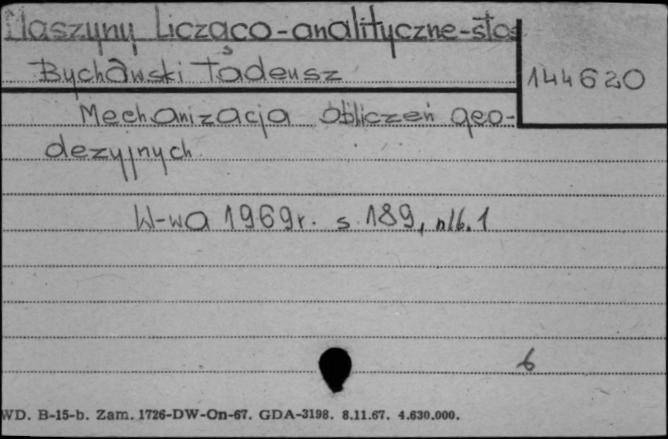 Maszyny Licząco-analityczne-stos
Bychawski Tadeusz
144620
Mechanizacja obliczeń geo-
dezyjnych.
W-wa 1969r. s. 189, nlb. 1
6
WD. B-15-b. Zam. 1726-DW-On-67. GDA-3198. 8.11.67. 4.630.000.